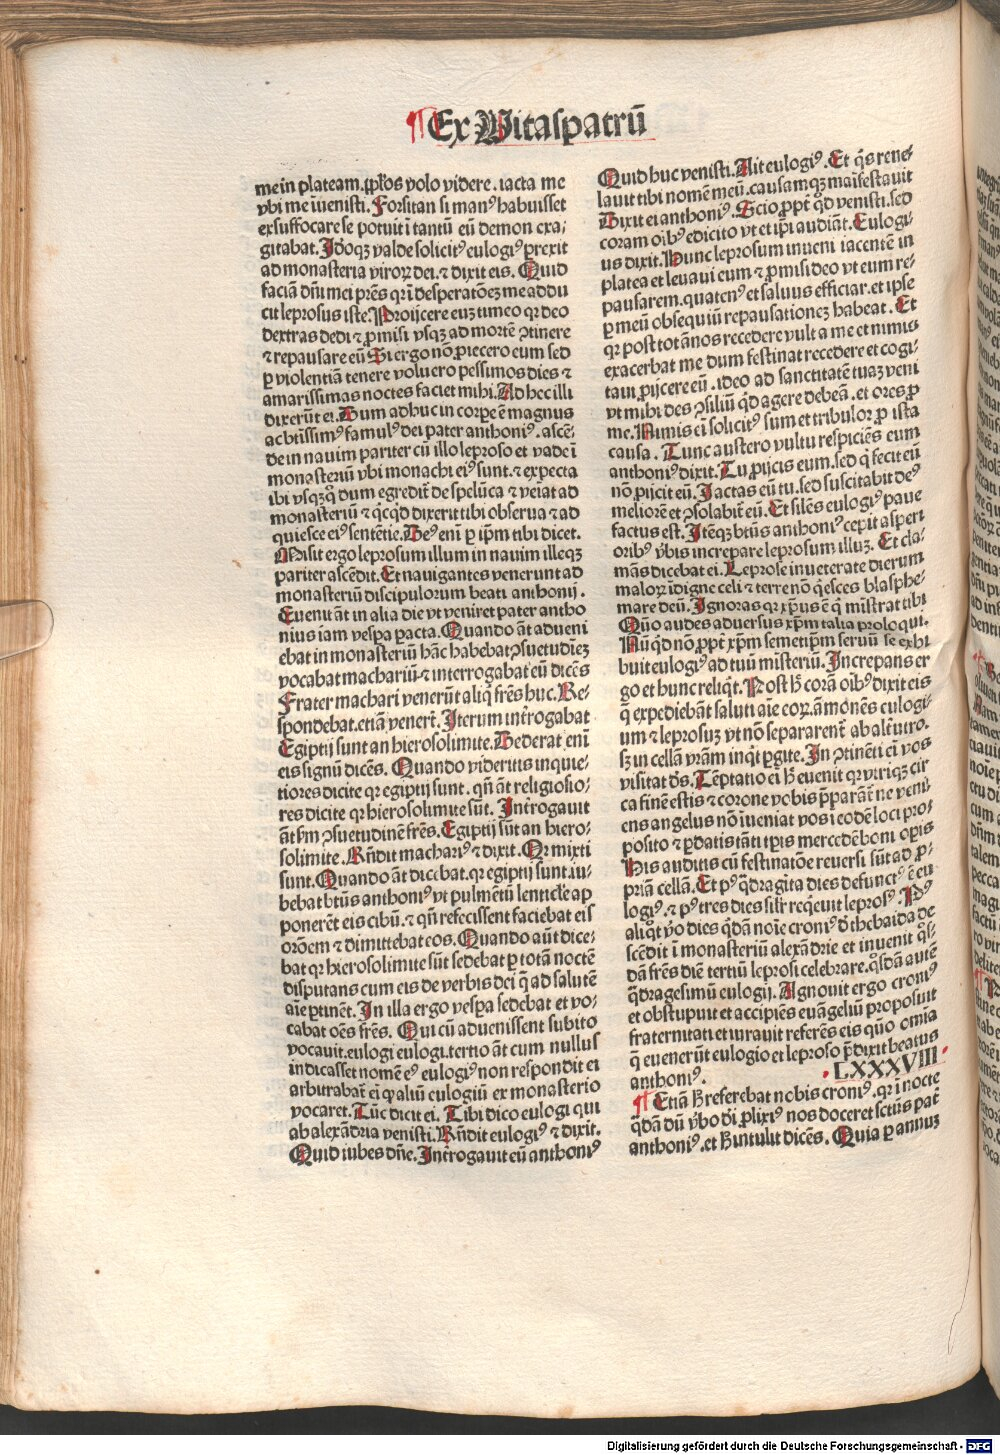 ¶Ex Vitaspatrū
me in plateam. pp̄los volo videre. iacta me
vbi me īuenisti. Forsitan si manꝰ habuisset
ex suffocare se potuit ī tantū eū demon exa-
gitabat. Idoqꝫ valde solicitꝰ eulogiꝰ prexit
ad monasteria viroꝝ dei. ⁊ dixit eis. Quid
faciā dn̄i mei pr̄es qr ī desperatōeꝫ me addu
cit leprosus iste. Proijcere euꝫ timeo qr deo
dextras dedi ⁊ ꝓmisi vsqꝫ ad mortē ꝯtinere
⁊ repausare eū Si ergo nō ꝓiecero eum sed
ꝑ violentiā tenere voluero pessimos dies ⁊
amarissimas noctes faciet mihi. Ad hec illi
dixerūt ei. Dum ad huc in corpe ē magnus
ac btissimꝰ famulꝰ dei pater anthoniꝰ. ascē-
de in nauim pariter cū illo leproso et vade ī
monasteriū vbi monachi eiꝰ sunt. ⁊ expecta
ibi vsqꝫqꝫ dum egredit̄ de spelūca ⁊ veiat ad
monasteriū ⁊ qcqd dixerit tibi obserua ⁊ ad
quiesce eiꝰ sentētie. Deꝰ eni ꝑ ipm tibi dicet.
Misit ergo leprosum illum in nauim illeqꝫ
pariter ascēdit. Et nauigantes venerunt ad
monasteriū discipulorum beati anthonij.
Euenit āt in alia die vt veniret pater antho
nius iam vespa facta. Quando āt adueni
ebat in monasteriū hāc habebat ꝯsuetudieꝫ
vocabat machariū ⁊ interrogabat eū dicēs
Frater machari venerūt aliq fr̄es huc. Re-
spondebat. etiā venerūt. Iterum int̄rogabat
Egiptij sunt an hierosolimite. Dederat eni
eis signū dicēs. Quando videritis inquie-
tiores dicite qr egiptij sunt. qn̄ āt religiosio-
res dicite qr hierosolimite sūt. Int̄rogauit
āt ẜm ꝯsuetudinē fr̄es. Egiptij sūt an hiero-
solimite. Rn̄dit machariꝰ ⁊ dixit. Qr mixti
sunt. Quando āt dicebat. qr egiptij sunt. iu-
bebat btūs anthoniꝰ vt pulmētū lenticle ap
ponerēt eis cibū. ⁊ qn̄ refecissent faciebat eis
orōem ⁊ dimittebat eos. Quando aūt dice-
bat qr hierosolimite sūt sedebat ꝑ totā noctē
disputans cum eis de verbis dei q̄ ad salutē
aīe ꝑtinēt. In illa ergo vespa sedebat et vo-
cabat oēs fr̄es. Qui cū aduenissent subito
vocauit. eulogi eulogi. tertio āt cum nullus
indicasset nomē eꝰ eulogiꝰ non respondit ei
arbitrabat̄ ei qꝫ aliū eulogiū ex monasterio
vocaret. Tūc dicit ei. Tibi dico eulogi qui
ab alexādria venisti. Rn̄dit eulogiꝰ ⁊ dixit.
Quid iubes dn̄e. Int̄rogauit eū anthoniꝰ
Quid huc venisti. Ait eulogiꝰ. Et q̄s reue-
lauit tibi nomē meū. causamqꝫ māifestauit
Dixit ei anthoniꝰ. Scio ꝓpt̄ qd̄ venisti. sed
coram oībꝰ edicito vt et ipī audiāt. Eulogi-
us dixit. Hunc leprosum inueni iacentē in
platea et leuaui eum ⁊ ꝓmisi deo vt eum re-
pausarem. quatenꝰ et saluus efficiar. et ipse
ꝑ meū obsequiū repausationeꝫ habeat. Et
qr post tot ānos recedere vult a me et nimis
exacerbat me dum festinat recedere et cogi-
taui ꝓijcere eū. ideo ad sanctitatē tuaꝫ veni
vt mihi des ꝯsiliū qd̄ agere debeā. et ores ꝓ
me. Nimis ei solicitꝰ sum et tribulor ꝓ ista
causa. Tunc austero vultu respiciēs eum
anthoniꝰ dixit. Tu ꝓijcis eum. sed q̄ fecit eū
nō ꝓijcit eū. Iactas eū tu. sed suscitabit deꝰ
meliorē et ꝯsolabit̄ eū. Et silēs eulogiꝰ paue
factus est. Itēqꝫ btūs anthoniꝰ cepit asperi
oribꝰ v̄bis increpare leprosum illuꝫ. Et cla-
māns dicebat ei. Leprose inueterate dierum
maloꝝ īdigne celi ⁊ terre nō q̄esces blasphe-
mare deū. Ignoras qr xp̄us ē q̄ mīstrat tibi
Quō audes aduersus xp̄m talia proloqui.
Nū qd̄ nō ꝓpt̄ xp̄m semetip̄m seruū se exhi
buit eulogiꝰ ad tuū misteriū. Increpans er
go et hunc reliqt. Post h̄ corā oībꝰ dixit eis
q̄ expediebāt saluti aīe eoꝝ. āmonēs eulogi-
um ⁊ leprosuꝫ vt nō separarent̄ ab alt̄utro.
sꝫ in cellā vrām inqt pgite. In ꝯtinēti eī vos
visitat dn̄s. Tēptatio ei h̄ euenit qr vtriqꝫ cir
ca finē estis ⁊ corone vobis p̄parāt̄ ne veni
ens angelus nō iueniat vos ī codē loci pro-
posito ⁊ ꝑdatis tāti tpis mercedē boni opis
His auditis cū festinatōe reuersi sūt ad ꝓ-
priā cellā. Et pꝰ q̄dragīta dies defunctꝰ ē eu
logiꝰ. ⁊ pꝰ tres dies silr reqeuit leprosꝰ. Pꝰ
aliqt v̄o dies qdā noīe croniꝰ d̄ thebaida de
scēdit ī monasteriū alexādrie et inuenit q̄s-
dā fr̄es diē tertiū leprosi celebrare. q̄sdā autē
q̄dragesimū eulogij. Agnouit ergo croniꝰ
et obstupuit et accipiēs euāgeliū proposuit
fraternitati et iurauit referēs eis quō omīa
q̄ euenerūt eulogio et leproso p̄dixit beatus
anthoniꝰ. .LXXXVIII.
¶ Etiā h̄ referebat nobis croniꝰ. qr ī nocte
q̄dā dū v̄bo dī ꝓlixiꝰ nos doceret sctūs pat̄
anthoniꝰ. et h̄ intulit dicēs. Quia ꝑ annuꝫ
Digitalisierung gefördert durch die Deutsche Forschungsgemeinschaft - DFG